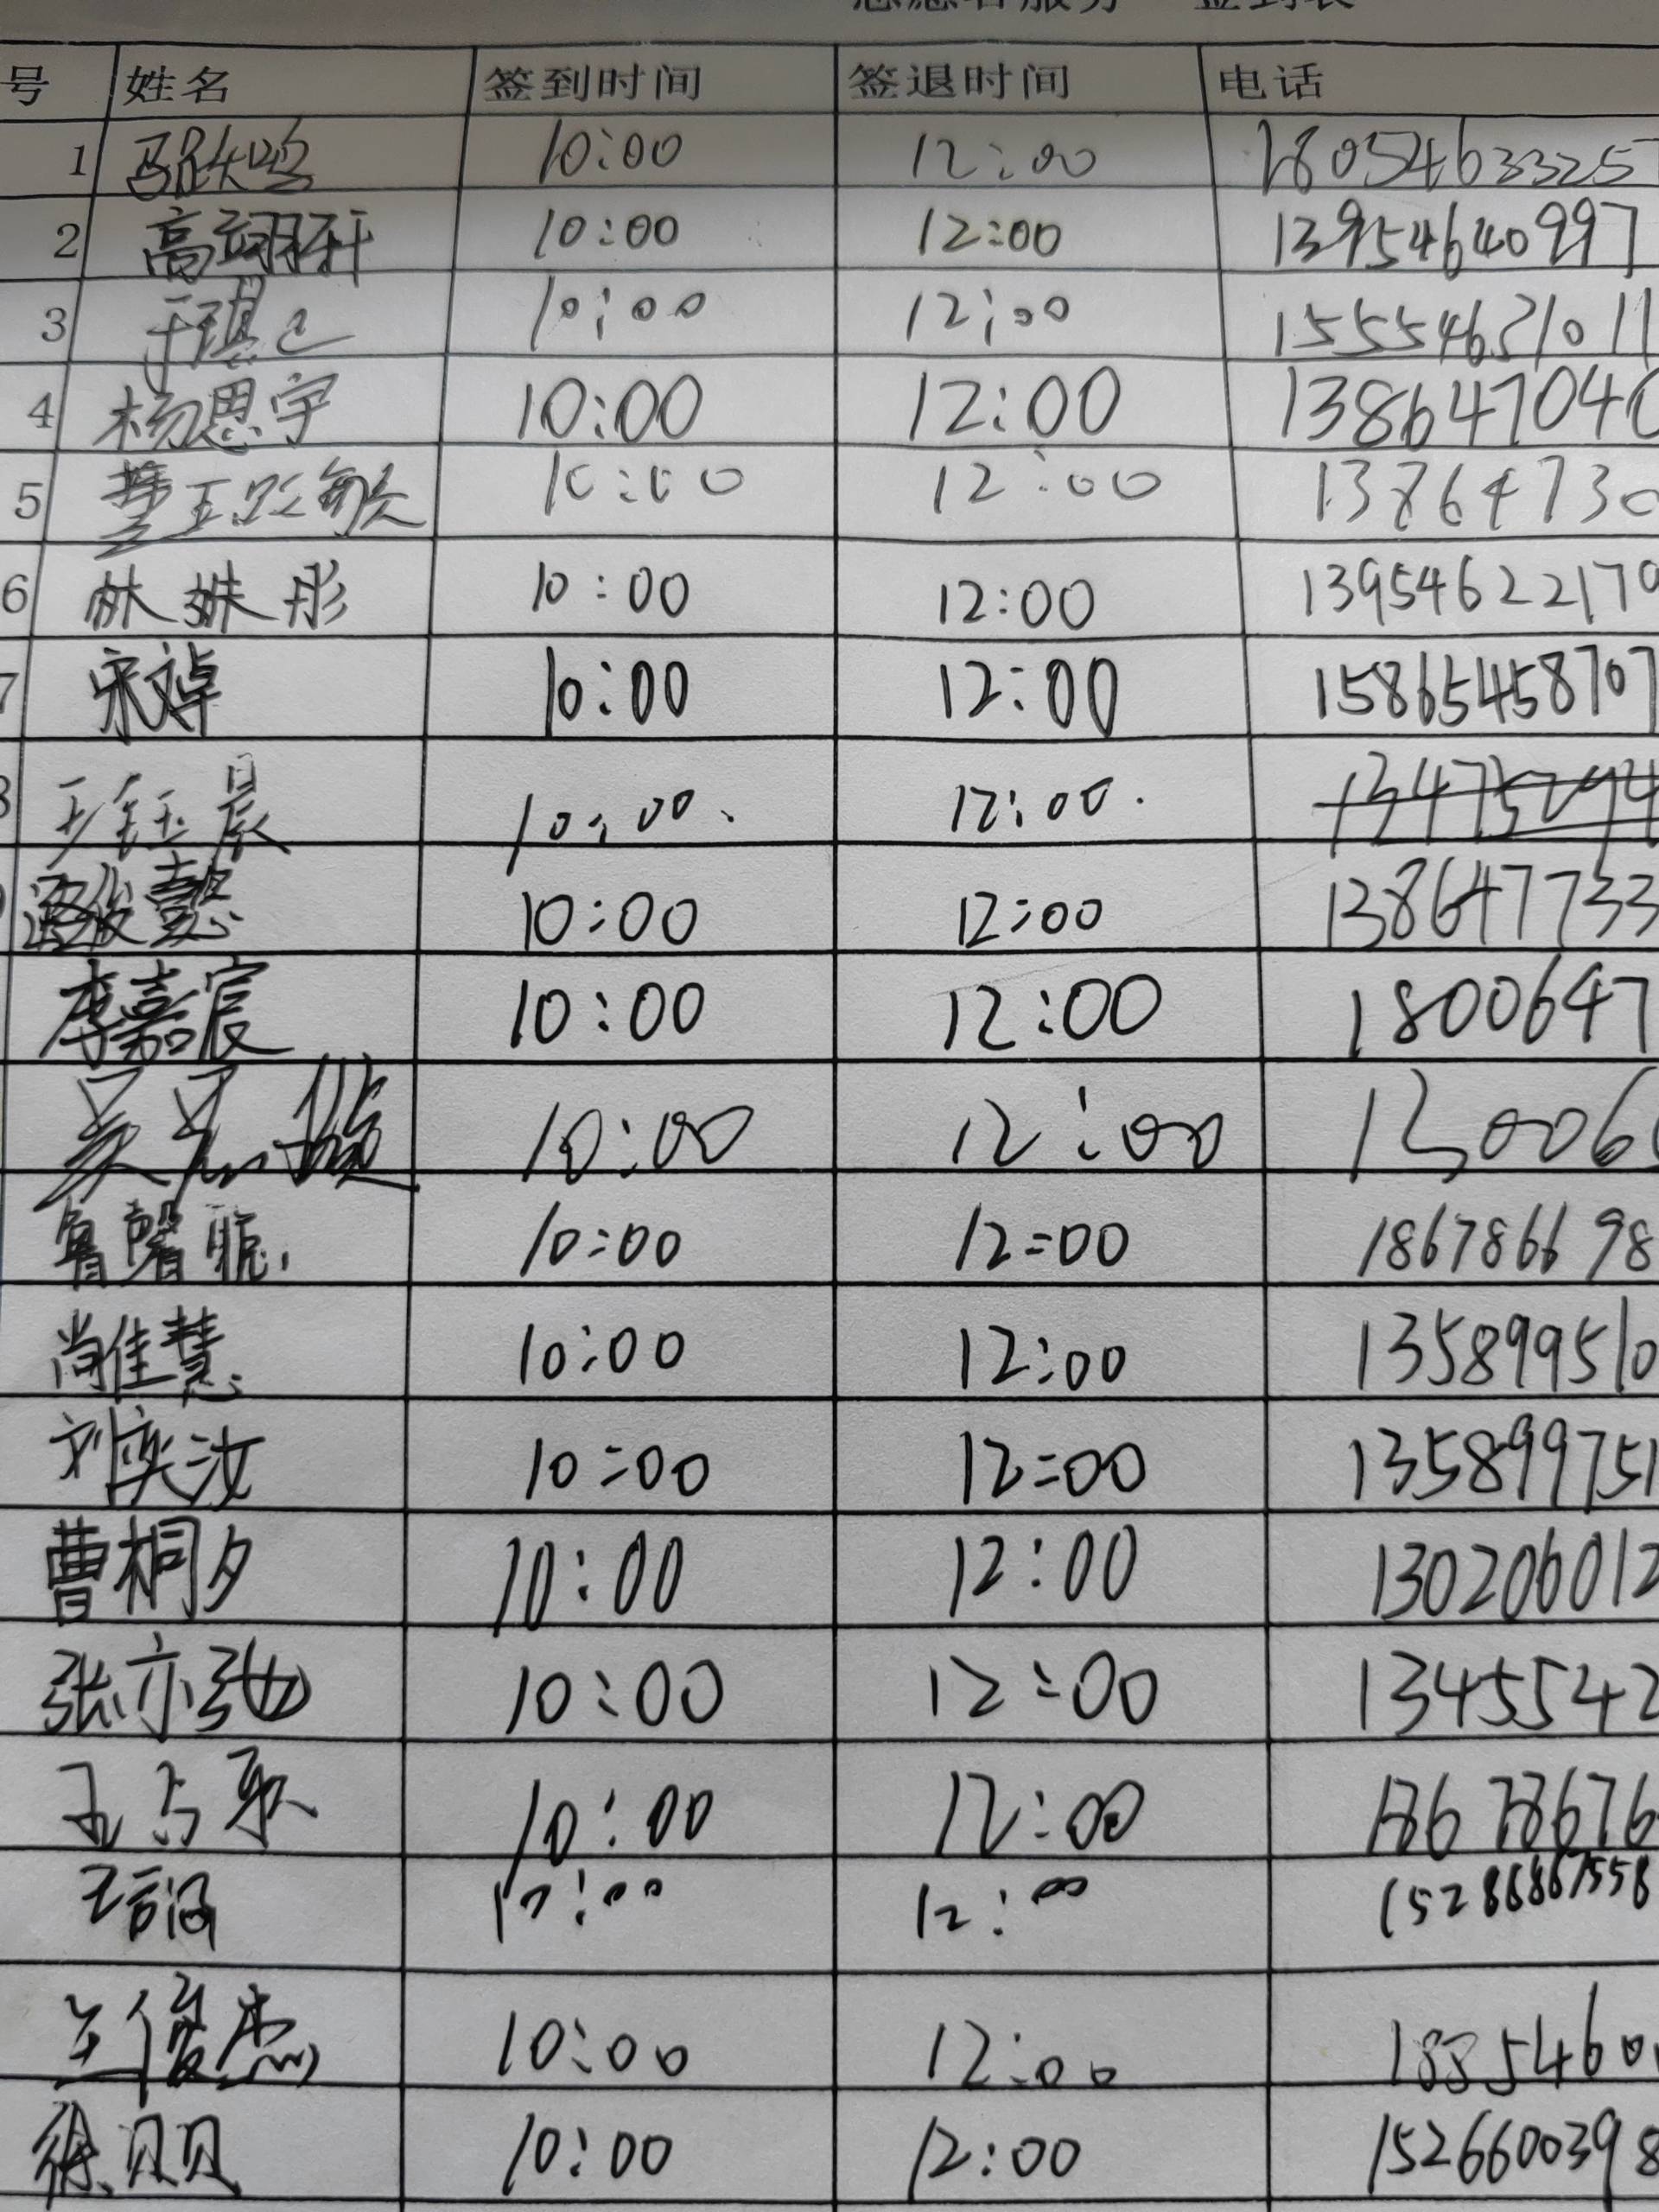 志愿者服务 签到表
号 姓名 签到时间 签退时间 电话
1 10:00 12:00 18054633257
2 高翊轩 10:00 12:00 13954640997
3 于琪 10:00 12:00 15554631011
4 杨思宇 10:00 12:00 138647040
5 10:00 12:00 13864730
6 林姝彤 10:00 12:00 13954622170
7 宋文卓 10:00 12:00 15865458707
8 王钰晨 10:00 12:00 134735294
10:00 12:00 138647733
李嘉宸 10:00 12:00 1800647
吴 10:00 12:00 13006
鲁馨 10:00 12:00 1867866 98
尚佳慧 10:00 12:00 135899510
刘奕汝 10:00 12:00 135899751
曹桐夕 10:00 12:00 130206012
张亦弛 10:00 12:00 1345542
10:00 12:00 18678676
10:00 12:00 15286867558
王俊杰 10:00 12:00 18854600
徐贝贝 10:00 12:00 1526600398